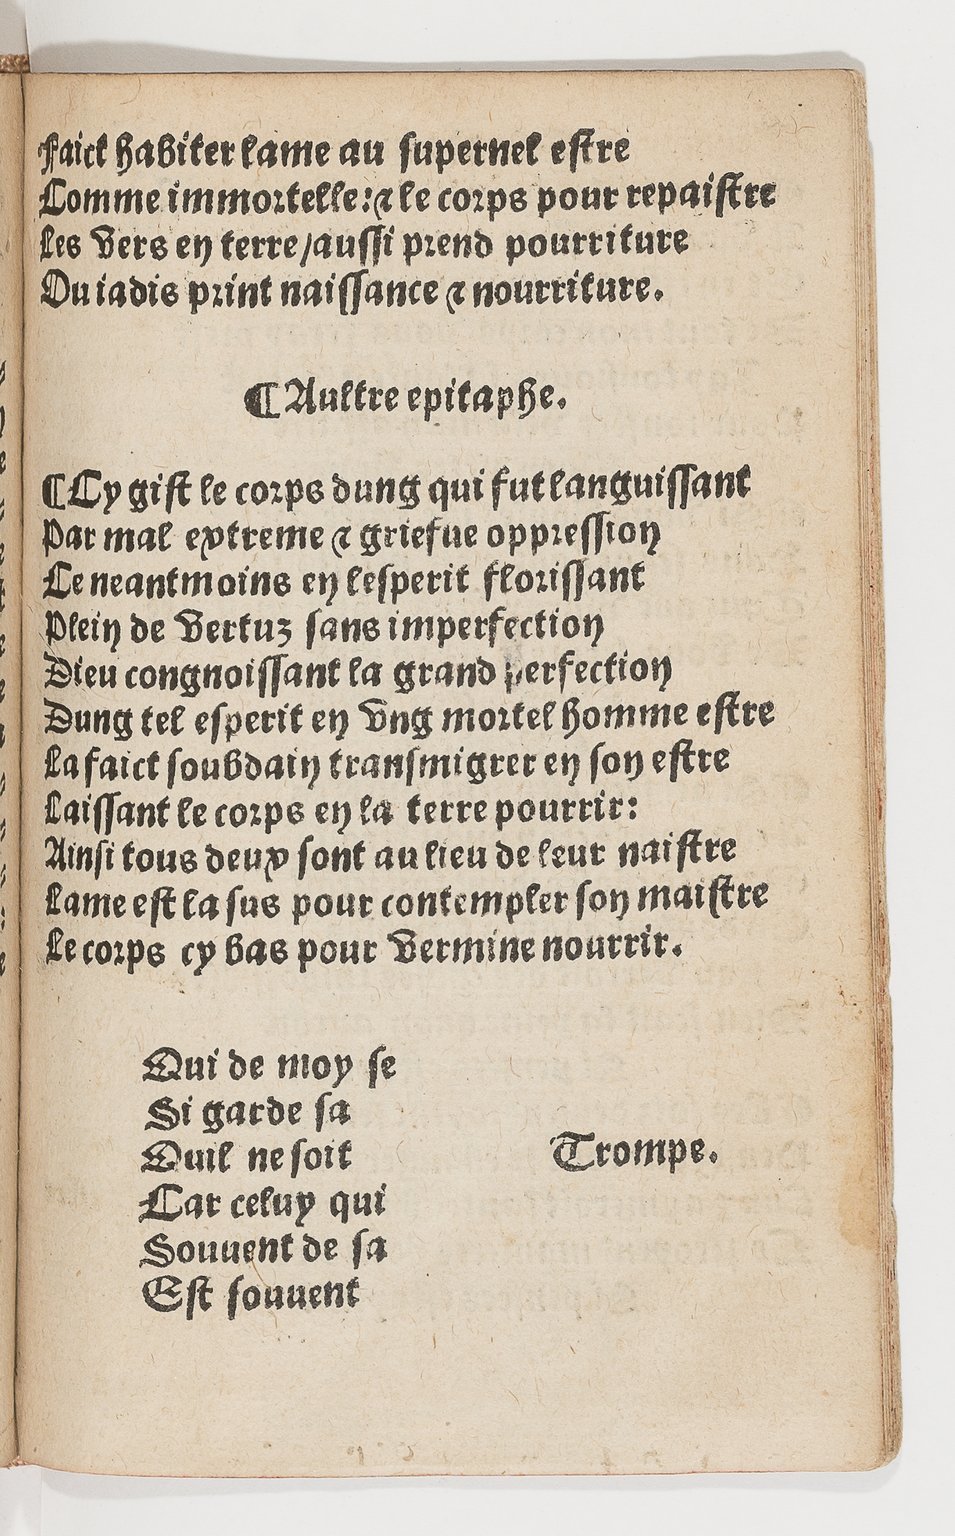 Faict habiter lame au supernel estre
Comme immortelle: & le corps pour repaistre
Les vers en terre/aussi prend pourriture
Ou iadis print naissance & nourriture.
¶ Aultre epitaphe.
¶ Cy gist le corps dung qui fut languissant
Par mal extreme & griefue oppression
Ce neantmoins en lesperit florissant
Plein de vertuz sans imperfection
Dieu congnoissant la grand perfection
Dung tel esperit en vng mortel homme estre
La faict soubdain transmigrer en son estre
Laissant le corps en la terre pourrir:
Ainsi tous deux sont au lieu de leur naistre
Lame est la sus pour contempler son maistre
Le corps cy bas pour vermine nourrir.
Qui de moy se
Si garde sa
Quil ne soit
Car celuy qui
Souuent de sa
Est souuent
Trompe.